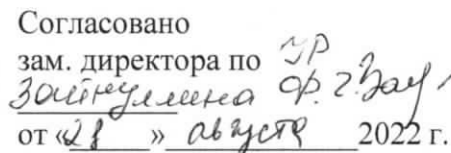 Согласовано
зам. директора по УР
Зайнуллина Ф. Г. Зай
от «28» августа 2022 г.